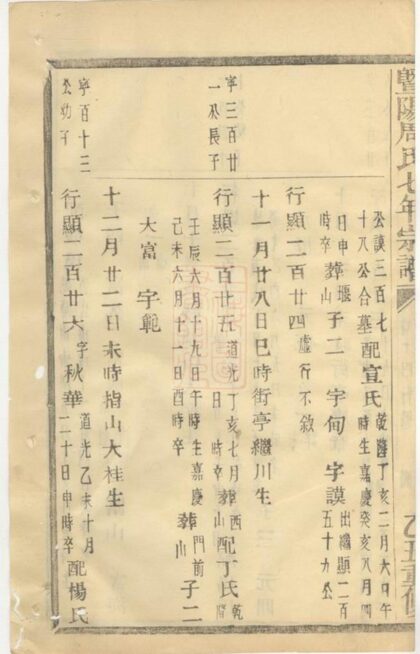 暨陽周氏七年宗譜
乙丑重修
公謨三百七
十八公合墓配宣氏乾隆丁亥二月六日午
時生嘉慶癸亥八月四
日申時卒葬山子二字甸字謨出繼顯二百
五十九公
行顯二百廿四虛行不敘
十一月廿八日巳時街亭繼川生
字三百廿
一公長子
行顯二百廿五道光丁亥七月
日時卒葬山配丁氏乾隆
壬辰六月十九日午時生嘉慶
己未六月十一日酉時卒葬門前山子二
大富字範
十二月廿二日未時指山大桂生
字百十三
公幼子
行顯二百廿六字秋華道光乙未十月
二十日申時卒配楊氏